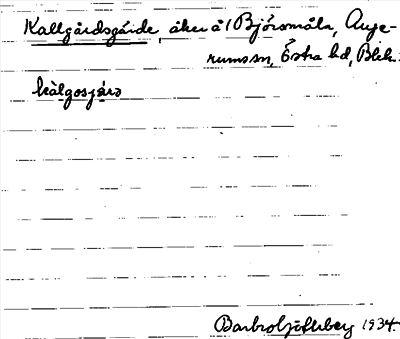 Kallgårdsgärde, åker å Björsmåla, Auge-
rums sn, Östra hd, Blek.
kàlgosjæ̀rə
Barbro Söderberg 1934.